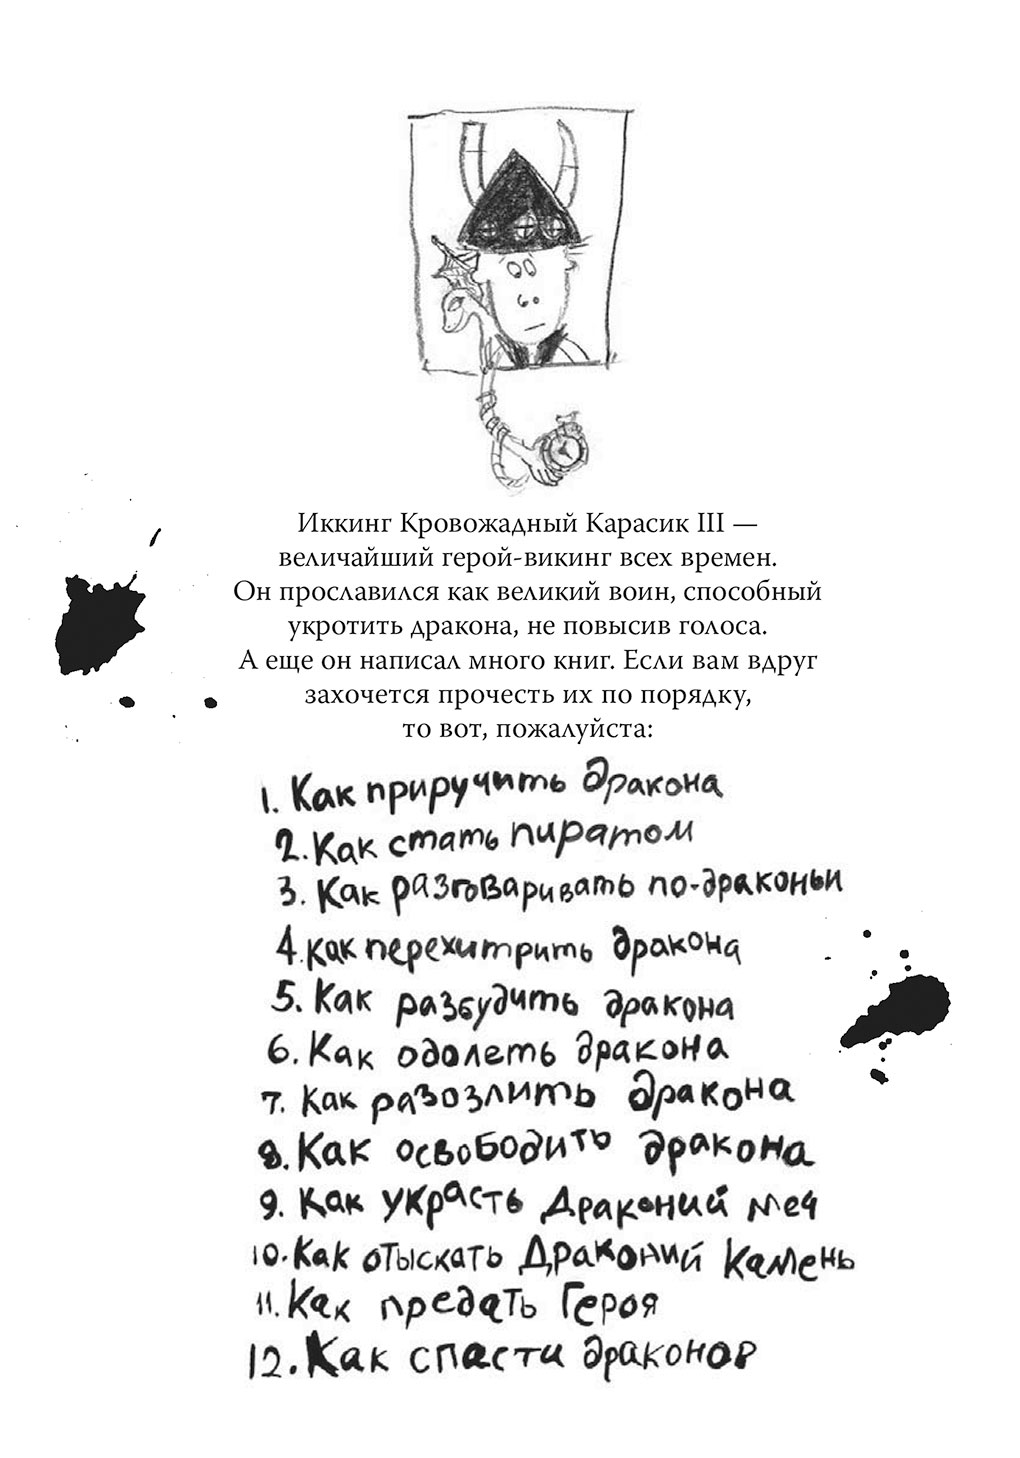 Иккинг Кровожадный Карасик III —
величайший герой-викинг всех времен.
Он прославился как великий воин, способный
укротить дракона, не повысив голоса.
А еще он написал много книг. Если вам вдруг
захочется прочесть их по порядку,
то вот, пожалуйста:
1. Как приручить дракона
2. Как стать пиратом
3. Как разговаривать по-драконьи
4. Как перехитрить дракона
5. Как разбудить дракона
6. Как одолеть дракона
7. Как разозлить дракона
8. Как освободить дракона
9. Как украсть Драконий меч
10. Как отыскать Драконий Камень
11. Как предать Героя
12. Как спасти драконов